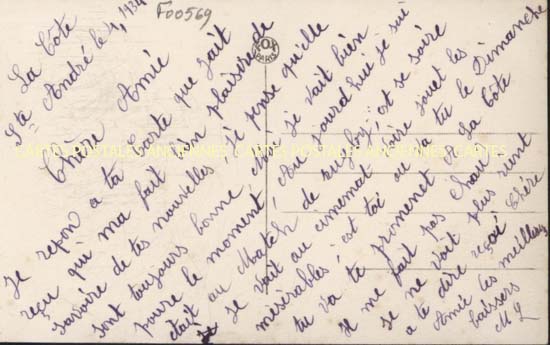 F00569
La Côte
St André le 4, 1934
Chère Amie
Je repon a ta carte que jait
reçu qui ma fait bien plaisire de
savoire de tes nouvelles, je pense qu'elle
sont toujours bonne moi je vait bien
poure le moment. Au jourd'hui je sui
était au Match de rugby, est se soire
je vait au cinemat voire jouet les
miserables; est toi ou va tu le Dimanche
tu va te promenet
Il me fait pas chaud a La Côte
Je ne voit plus rient
a te dire reçoi Chère
Amie les meilleurs
baissers
M L
CARTES POSTALES ANCIENNES CARTES POSTALES ANCIENNES CARTES